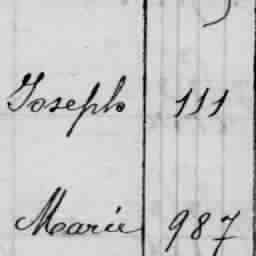 Joseph 111
Marie 987